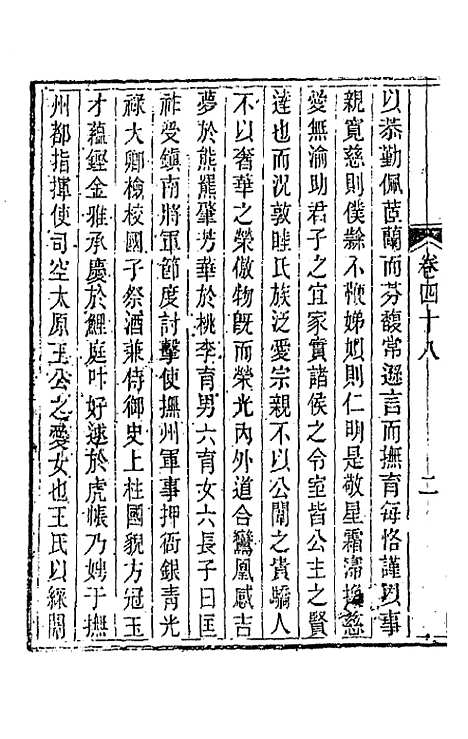 卷四十八
二
以恭勤佩茝蘭而芬馥常遜言而撫育每恪謹以事
親寛慈則僕隸不鞭娣姒則仁明是敬星霜洊換慈
愛無渝助君子之宜家實諸侯之令室皆公主之賢
達也而況敦睦氏族泛愛宗親不以公閫之貴驕人
不以奢華之榮傲物旣而榮光內外道合鸞凰感吉
夢於熊羆肇芳華於桃李育男六育女六長子曰匡
祚受鎮南將軍節度討擊使撫州軍事押衙銀青光
祿大卿檢校國子祭酒兼侍御史上柱國貌方冠玉
才蘊鏗金雅承慶於鯉庭叶好逑於虎帳乃娉于撫
州都指揮使司空太原王公之愛女也王氏以綵閤